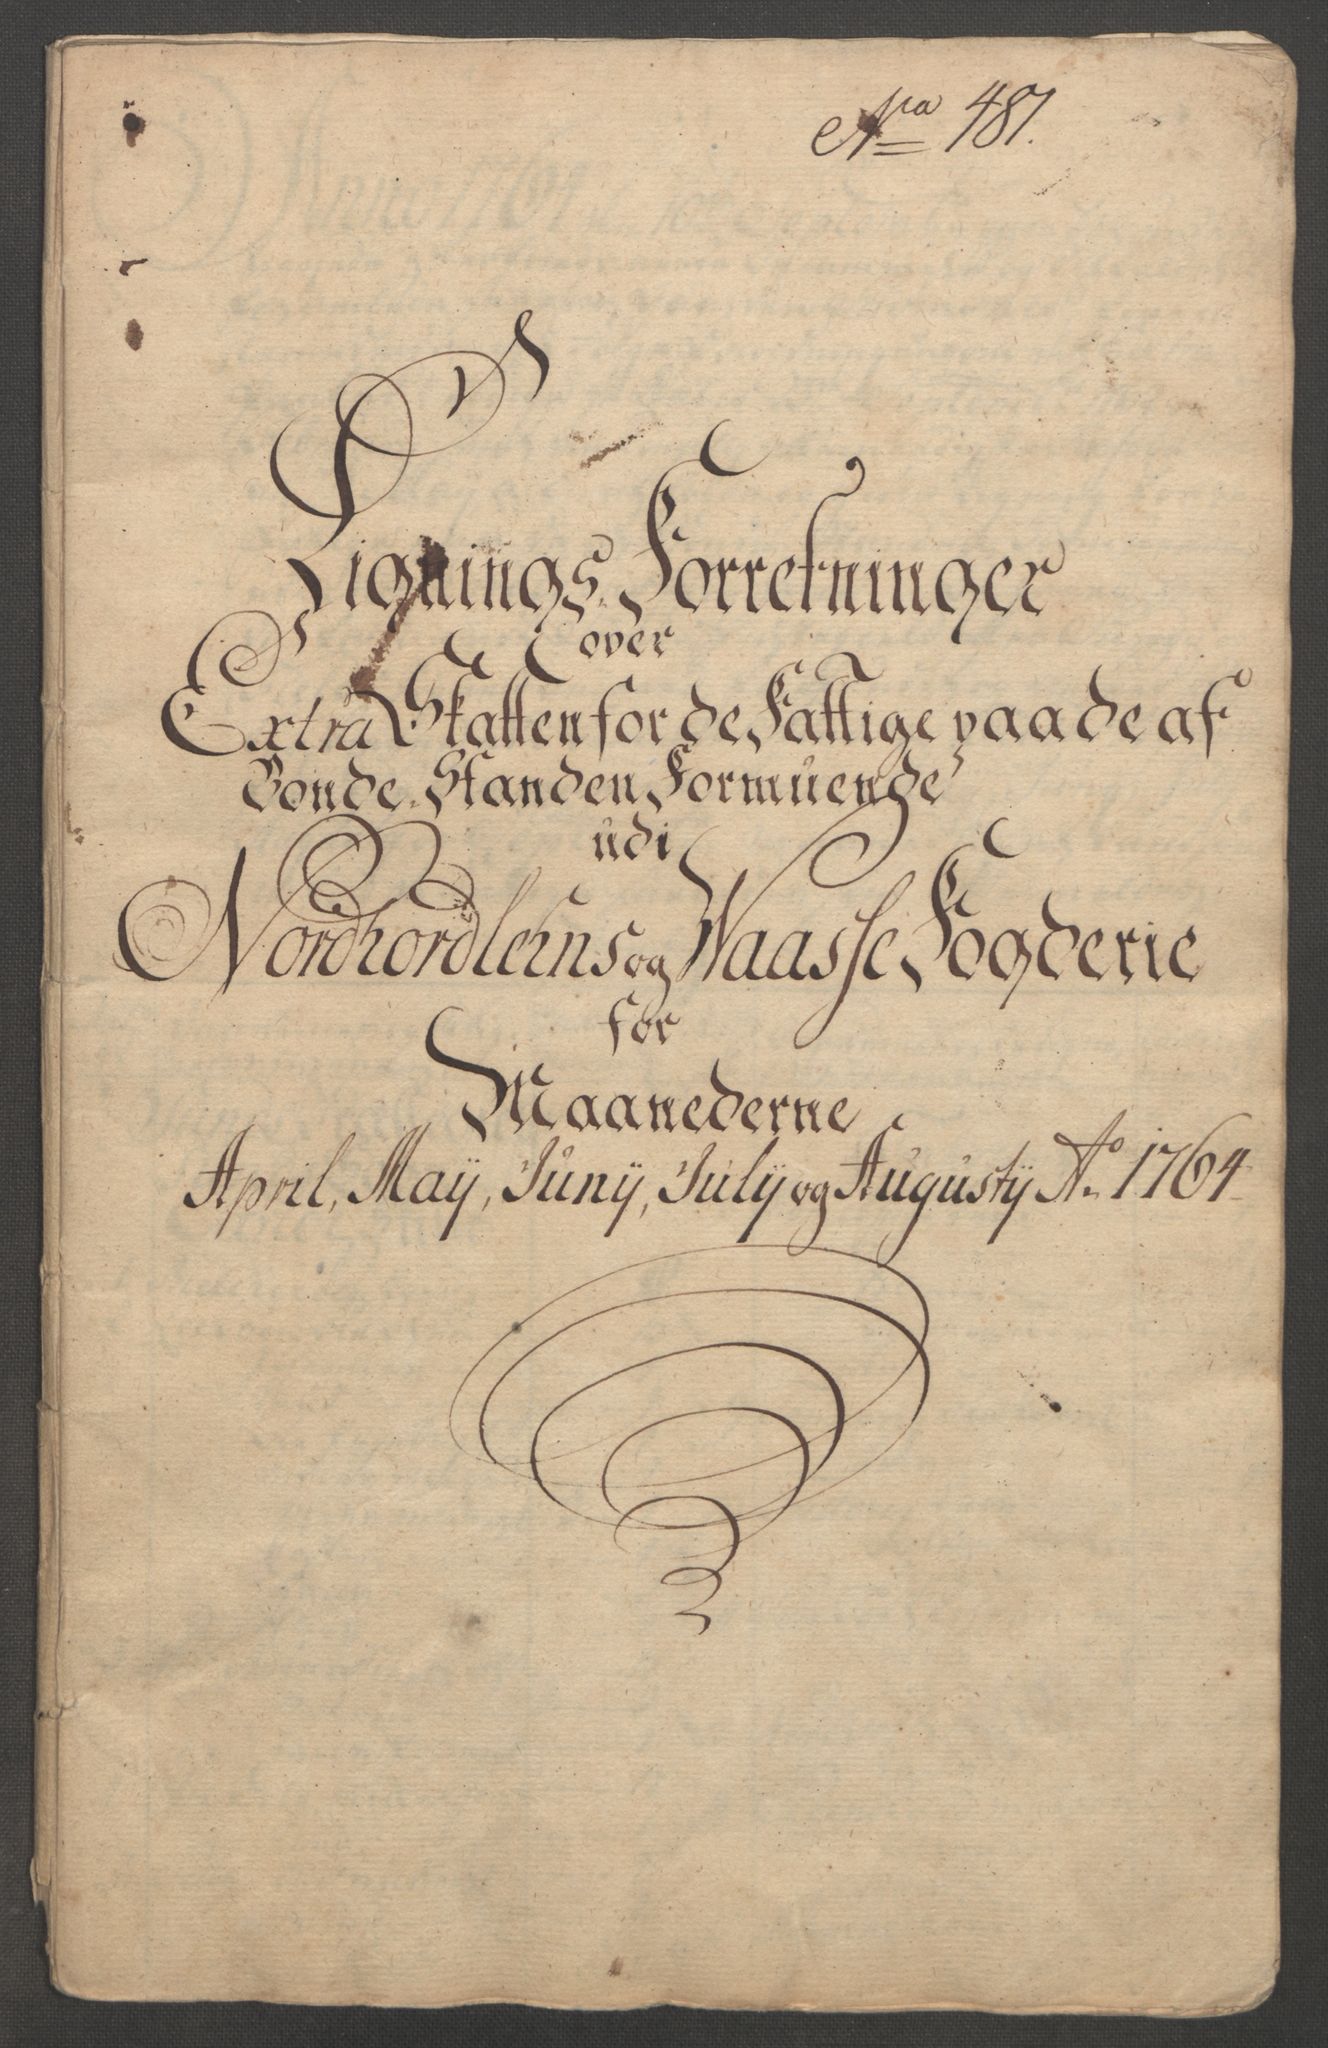 No 487.
Lignings Forretninger
over
Extra Skatten for de Fattige paa de af
Bonde-Standen Formuende
udi
Nordhordlehns og Waasse Fogderie
for
Maanederne
April, Maÿ, Junÿ, Julÿ og Augustÿ Ao 1764